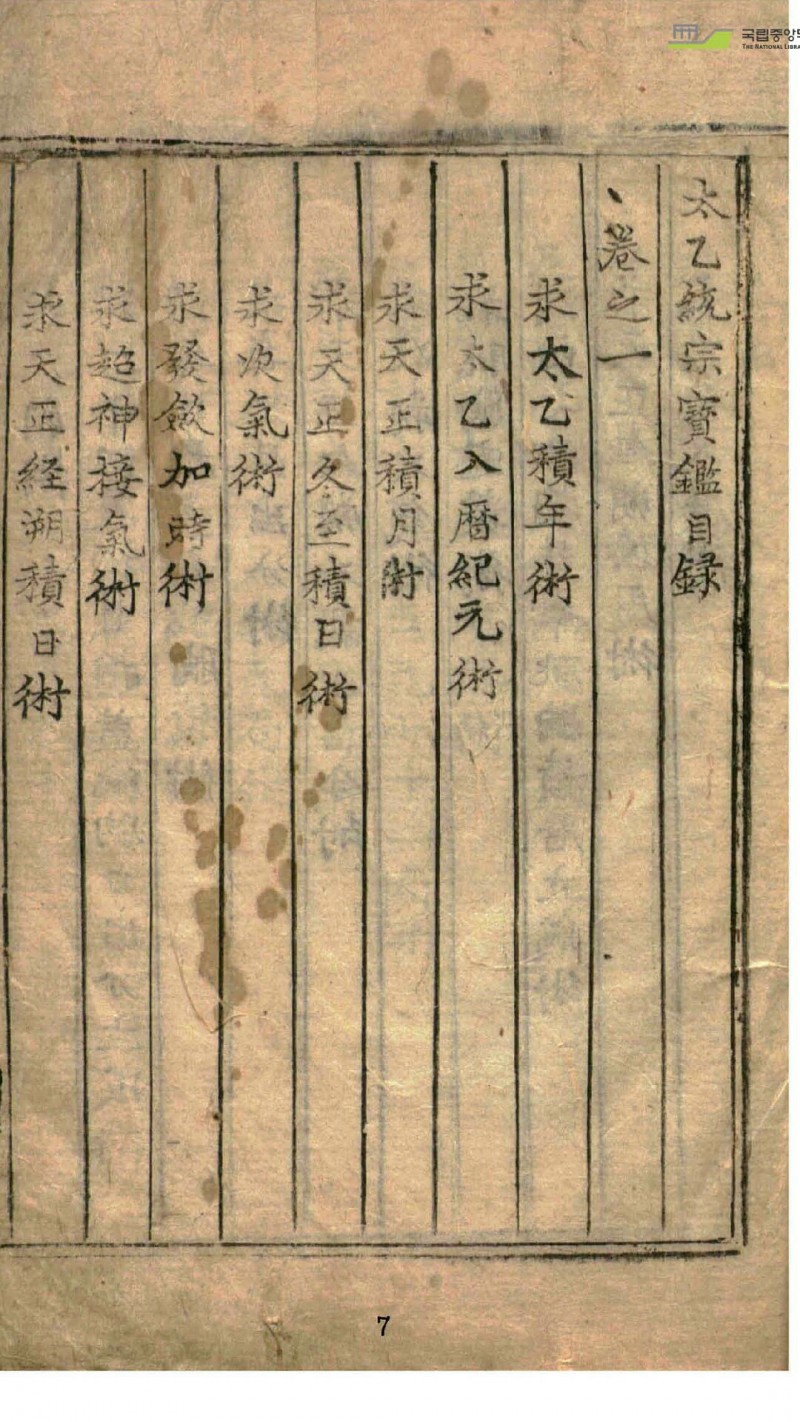 太乙統宗寶鑑目録
卷之一
求太乙積年術
求太乙入曆紀元術
求天正積月術
求天正冬至積日術
求次氣術
求發斂加時術
求超神接氣術
求天正経朔積日術
7
국립중앙
THE NATIONAL LIBRA